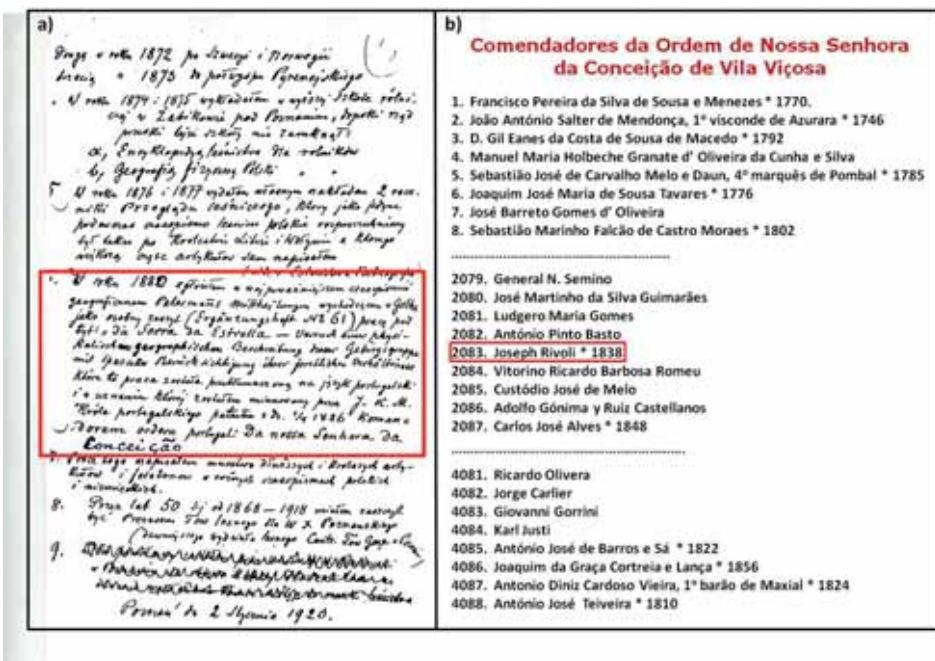 a)
Drugą w roku 1872 po Szwecyi i Norwegii
trzecią " 1873 do półwyspu Pyrenejskiego
W roku 1874 i 1875 wykładałem w wyższej szkole rolni-
czej w Żabikowie pod Poznaniem, dopóki rząd
pruski tejże szkoły nie zamknął:
a, Encyklopedyą leśnictwa dla rolników
b, Geografią fizyczną Polski
5. W roku 1876 i 1877 wydałem własnym nakładem 2 rocz-
niki Przeglądu leśniczego, który jako jedyne
czasopismo polskie
był także po Litwie i Wołyniu
artykułów sam napisałem
W roku 1880 ogłosiłem w najpoważniejszem czasopiśmie
geograficznem Petermanns Mittheilungen
jako osobny zeszyt (Ergänzungsheft № 61) pracę pod
tyt: Die Serra da Estrella — Versuch einer physi-
kalischen geographischen Beschreibung dieser Gebirgsgruppe
mit specieller Berücksichtigung ihrer forstlichen Verhältnisse
która to praca została przetłumaczoną na język portugalski
i w uznaniu której zostałem mianowany przez J. K. M.
Króla portugalskiego 1886 Koman-
dorem orderu portugal: Da nossa Senhora da
Conceição
7. Prócz tego napisałem mnóstwo dłuższych i krótszych arty-
kułów i w różnych czasopismach polskich
i niemieckich.
8. Przez lat 50 tj od 1868 — 1918 miałem zaszczyt
być Prezesem Tow W X Poznańskiego
9.
Poznań dn 2 Stycznia 1920.
b)
Comendadores da Ordem de Nossa Senhora
da Conceição de Vila Viçosa
1. Francisco Pereira da Silva de Sousa e Menezes * 1770.
2. João António Salter de Mendonça, 1º visconde de Azurara * 1746
3. D. Gil Eanes da Costa de Sousa de Macedo * 1792
4. Manuel Maria Holbeche Granate d' Oliveira da Cunha e Silva
5. Sebastião José de Carvalho Melo e Daun, 4º marquês de Pombal * 1785
6. Joaquim José Maria de Sousa Tavares * 1776
7. José Barreto Gomes d' Oliveira
8. Sebastião Marinho Falcão de Castro Moraes * 1802
2079. General N. Semino
2080. José Martinho da Silva Guimarães
2081. Ludgero Maria Gomes
2082. António Pinto Basto
2083. Joseph Rivoli * 1838
2084. Vitorino Ricardo Barbosa Romeu
2085. Custódio José de Melo
2086. Adolfo Gónima y Ruiz Castellanos
2087. Carlos José Alves * 1848
4081. Ricardo Olivera
4082. Jorge Carlier
4083. Giovanni Gorrini
4084. Karl Justi
4085. António José de Barros e Sá * 1822
4086. Joaquim da Graça Cortreia e Lança * 1856
4087. Antonio Diniz Cardoso Vieira, 1º barão de Maxial * 1824
4088. António José Teiveira * 1810